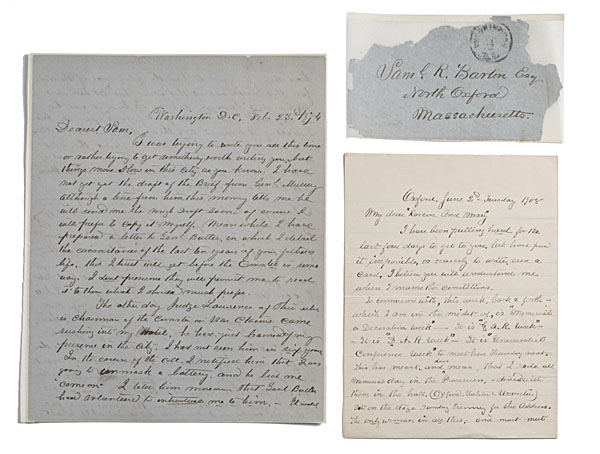 Washington D.C. Feb. 23. 1874
Dearest Sam,
I was trying to write you all this time
or rather trying to get something worth writing you, but
things move slow in this city, as you know. I have
not yet got the draft of the Brief from Genl. Mussey
although a line from him this morning tells me he
will send me the rough draft soon. of course I
will prefer to copy it myself. Meanwhile I have
prepared a letter to Genl Butler, in which I detail
the circumstances of the last ten years of your father's
life, this I trust will get before the Comtee in some
way. I dont presume they will permit me to read
it to them which I should much prefer.
The other day Judge Lawrence of Ohio who
is Chairman of the Comtee on War Claims came
rushing into my
presence in the City. I had not seen him in six years
In the course of the call I notified him that I was
going to unmask a battery and he bid me
"come on" I told him moreover that Genl Butler
had volunteered to introduce me to him, –
Saml. R. Barton Esq
North Oxford
Massachusetts.
Oxford, June 2d Tuesday 1908
My dear and May
I have been putting hard for the
last few days to get to you, but have found
it impossible, or scarcely to write, even a
card, I believe you will understand me
when I name the conditions.
To commence with, this week, back & forth –
which I am in the midst of, is Memorial
& Decoration week – It is G. A. R. week –
It is A. R. week – It is
Conference week
This has meant, and means, that I rode all
Memorial day in the Procession, dined with
them in the hall, (Oxford, Webster & Worcester)
on the stage Sunday evening for the address.
The only woman in all this, and must meet